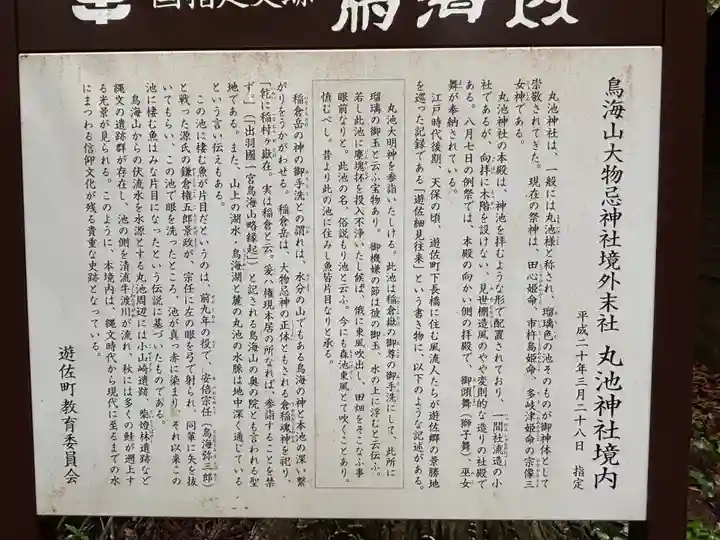 国指定史跡
鳥海山
鳥海山大物忌神社境外末社 丸池神社境内
平成二十年三月二十八日 指定
丸池神社は、一般には丸池様と称され、瑠璃色の池そのものが御神体として
崇敬されてきた。現在の祭神は、田心姫命、市杵島姫命、多岐津姫命の宗像三
女神である。
丸池神社の本殿は、神池を拝むような形で配置されており、一間社流造の小
社であるが、向拝に木階を設けない、見世棚造風のやや変則的な造りの社殿で
ある。八月七日の例祭では、本殿の向かい側の拝殿で、御頭舞(獅子舞)、巫女
舞が奉納されている。
江戸時代後期、天保の頃、遊佐町下長橋に住む風流人たちが遊佐郷の景勝地
を巡った記録である「遊佐細見往来」という書き物に、以下のような記述がある。
丸池大明神を参詣いたしける。此池は稲倉嶽の御尊の御手洗にして、此所に
瑠璃の御玉と云ふ宝物あり。御機嫌の節は渣の御玉、水の上に浮むと云伝ふ。
若し此池に塵塊抔を投入不浄いたし候ば、俄に東風吹出し、田畑をそこなふ事
眼前なりと。此池の名、俗説もり池と云ふ。今にも森池東風とて吹くことあり。
慎むべし。昔より此の池に住みし魚皆片目なりと承る。
稲倉岳の神の御手洗との謂れは、水分の山でもある鳥海の神と本池の深い繋
がりをうかがわせる。稲倉岳は、大物忌神の正体ともされる倉稲魂神を祀り、
「牝に稲村ヶ嶽在。実は稲倉と云。爰ハ権現本居の所なれば、参詣することを禁
ず。」(「出羽國一宮鳥海山略縁起」)と記される鳥海山の奥の院とも言われる聖
地である。また、山上の湖水・鳥海湖と麓の丸池の水脈は地中深く通じている
という言い伝えもある。
この池に棲む魚が片目だというのは、前九年の役で、安倍宗任(鳥海弥三郎)
と戦った源氏の鎌倉権五郎景政が、宗任に左の眼を弓で射られ、同輩に矢を抜
いてもらい、この池で眼を洗ったところ、池が真っ赤に染まり、それ以来この
池に棲む魚はみな片目になったという伝説に基づいたものである。
鳥海山からの伏流水を水源とする丸池周辺には小山崎遺跡、柴燈林遺跡など
縄文の遺跡群が存在し、池の側を清流牛渡川が流れ、秋には多くの鮭が遡上す
る光景が見られる。このように、本境内は、縄文時代から現代に至るまでの水
にまつわる信仰文化が残る貴重な史跡となっている。
遊佐町教育委員会